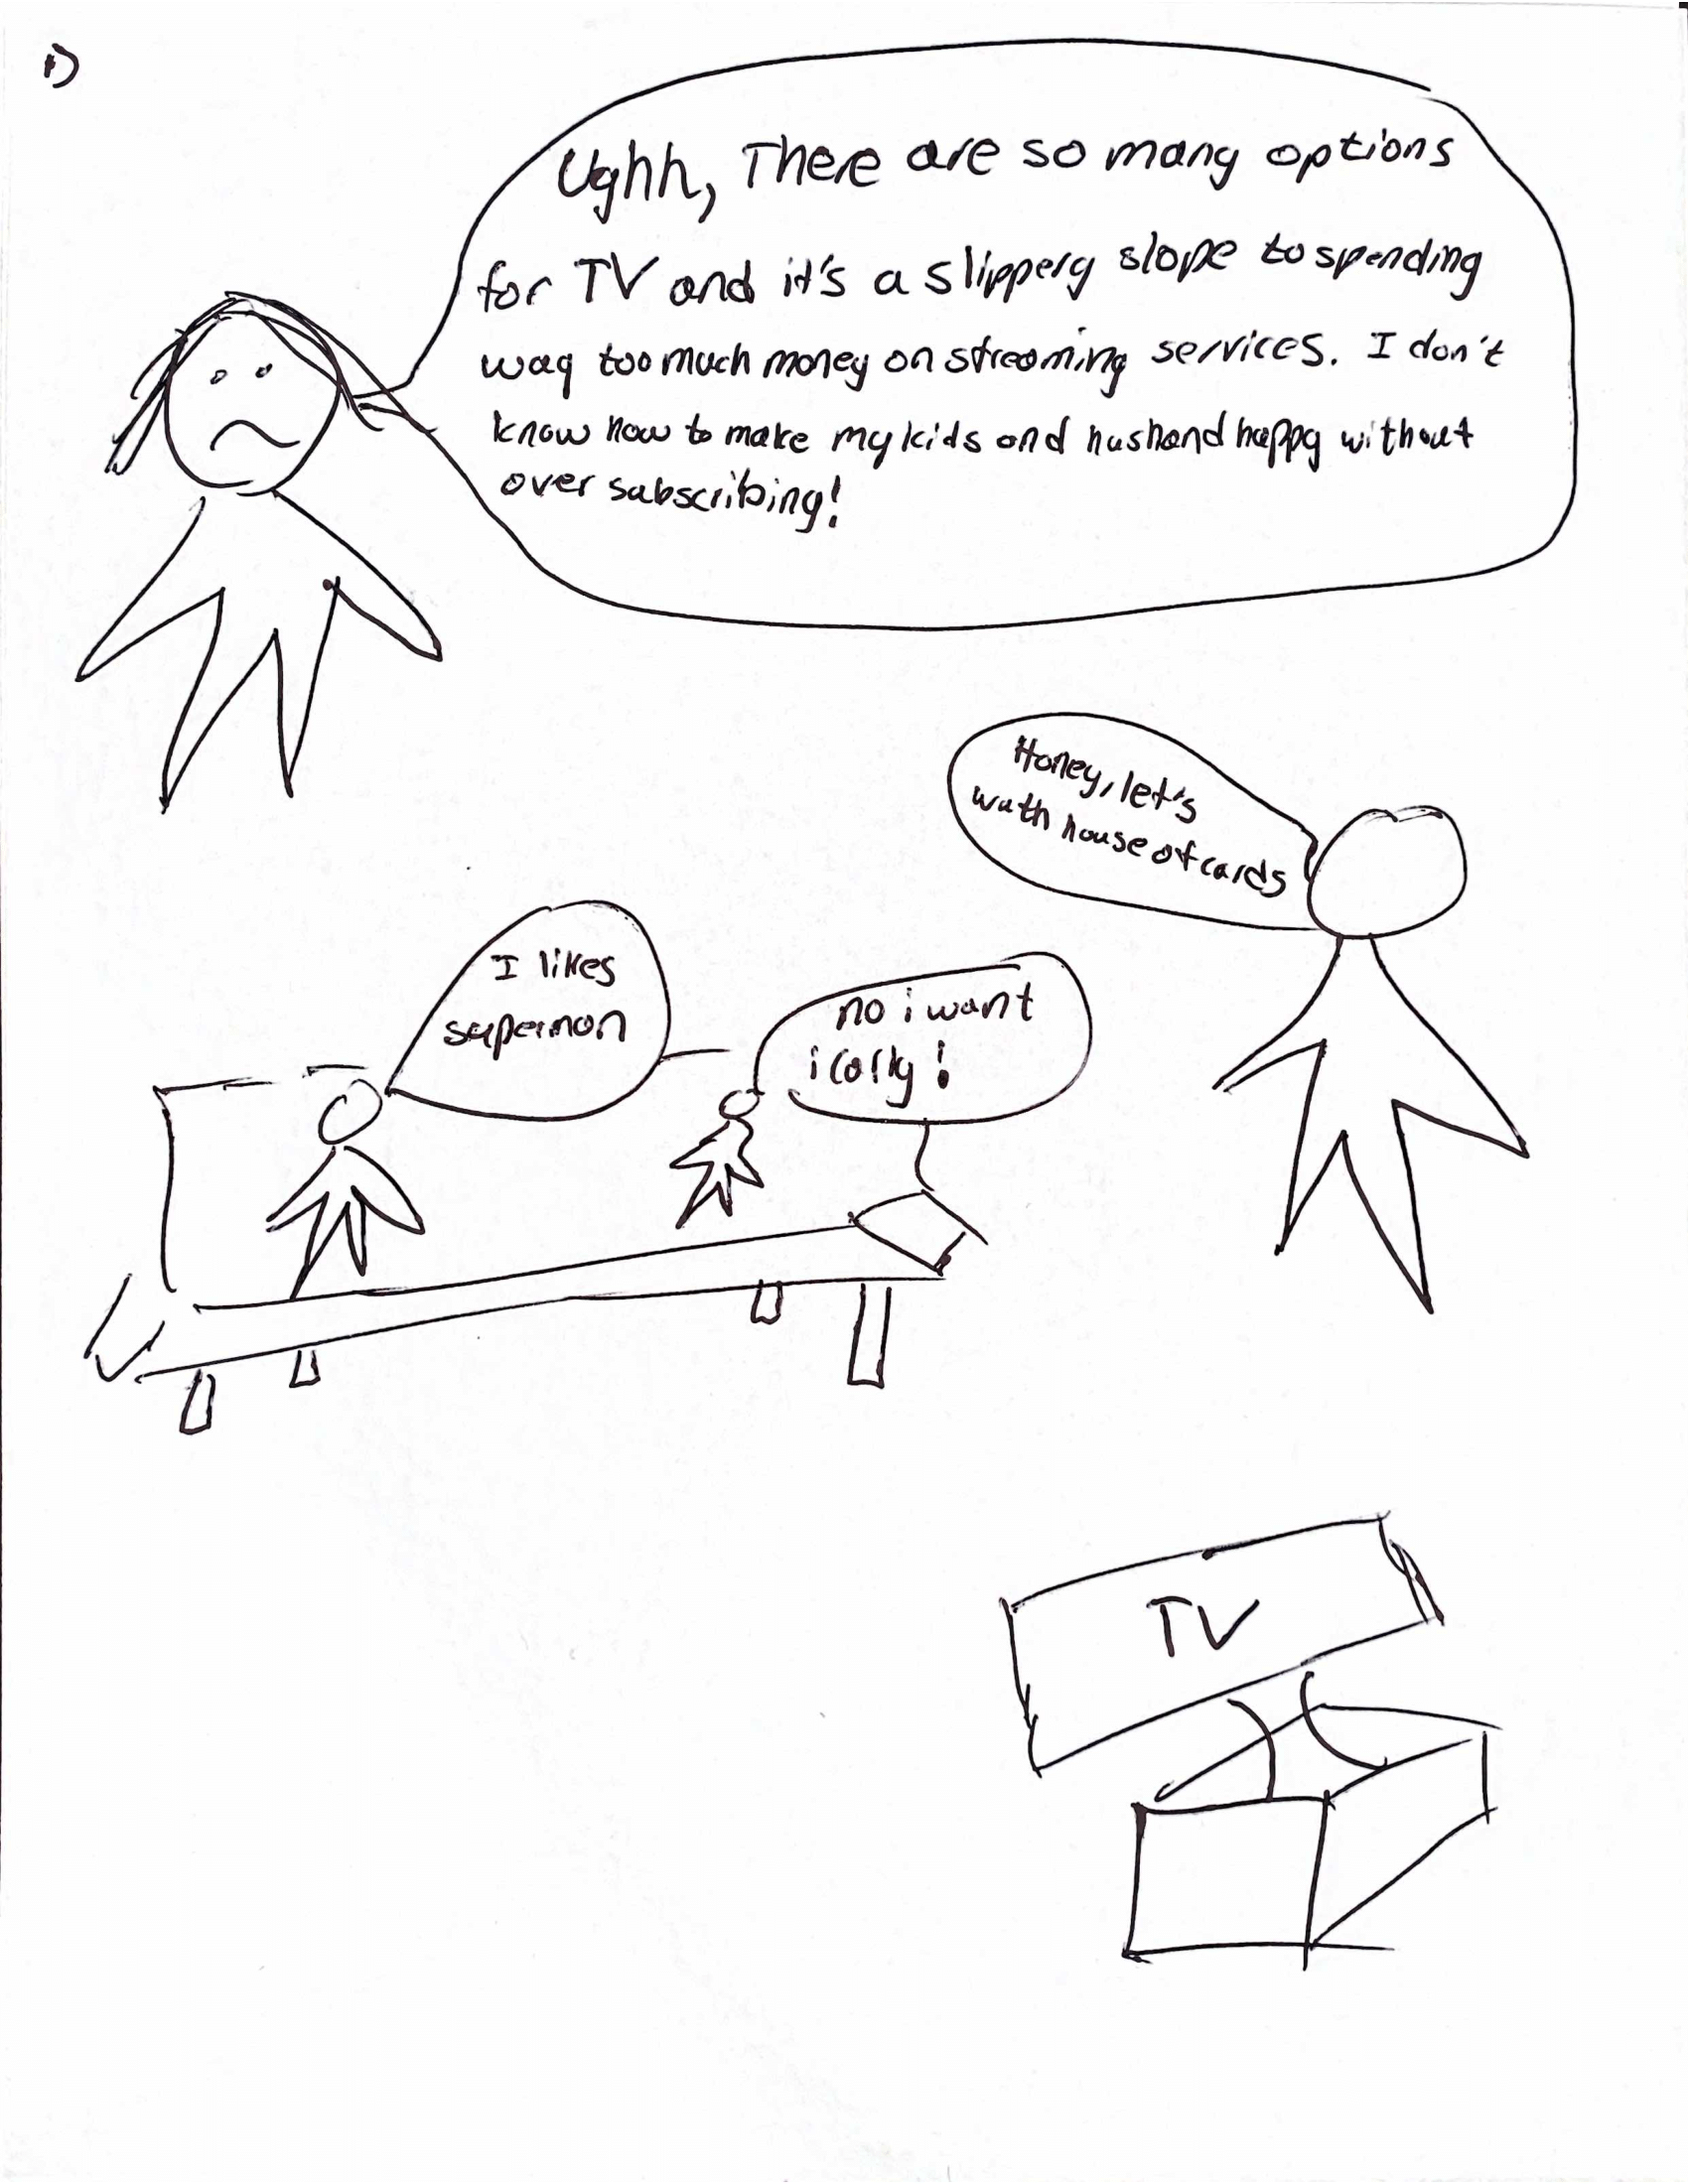 1)
Ughh, There are so many options
for TV and it's a slippery slope to spending
way too much money on streaming services. I don't
know how to make my kids and husband happy without
over subscribing!
Honey, let's
wath house of cards
I likes
superman
no i want
icarly!
TV